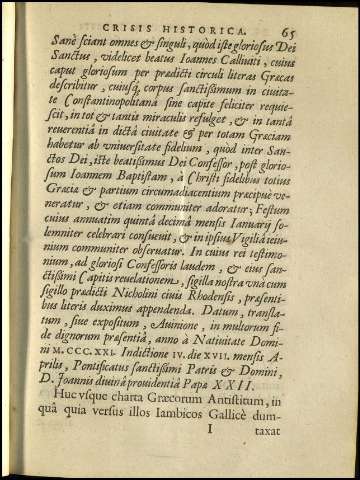 CRISIS HISTORICA. 65
Sanè sciant omnes & singuli, quòd iste gloriosus Dei
Sanctus, videlicet beatus Ioannes Calliuiti, cuius
caput gloriosum per prædicti circuli literas Græcas
describitur, cuiusq́ corpus sanctissimum in ciuita-
te Constantinopolitanâ sine capite feliciter requie-
scit, in tot & tantis miraculis refulget, & in tantâ
reuerentiâ in dictâ ciuitate & per totam Græciam
habetur ab vniuersitate fidelium, quòd inter San-
ctos Dei, iste beatissimus Dei Confessor, post glorio-
sum Ioannem Baptistam, à Christi fidelibus totius
Græciæ & partium circumadiacentium præcipuè ve-
neratur, & etiam communiter adoratur; Festum
cuius annuatim quintâ decimâ mensis Ianuarij so-
lemniter celebrari consueuit, & in ipsius Vigiliâ ieiu-
nium communiter obseruatur. In cuius rei testimo-
nium, ad gloriosi Confessoris laudem, & eius san-
ctissimi Capitis reuelationem, sigilla nostra vnà cum
sigillo prædicti Nicholini ciuis Rhodensis, præsenti-
bus literis duximus appendenda. Datum, transla-
tum, siue expositum, Auinione, in multorum fi-
de dignorum præsentiâ, anno à Natiuitate Domi-
ni M.CCC.XXI. Indictione IV. die XVII. mensis A-
prilis, Pontificatus sanctissimi Patris & Domini,
D. Joannis diuinâ prouidentiâ Papæ XXII.
Huc vsque charta Græcorum Antistitum, in
quâ quia versus illos Iambicos Gallicè dum-
I taxat